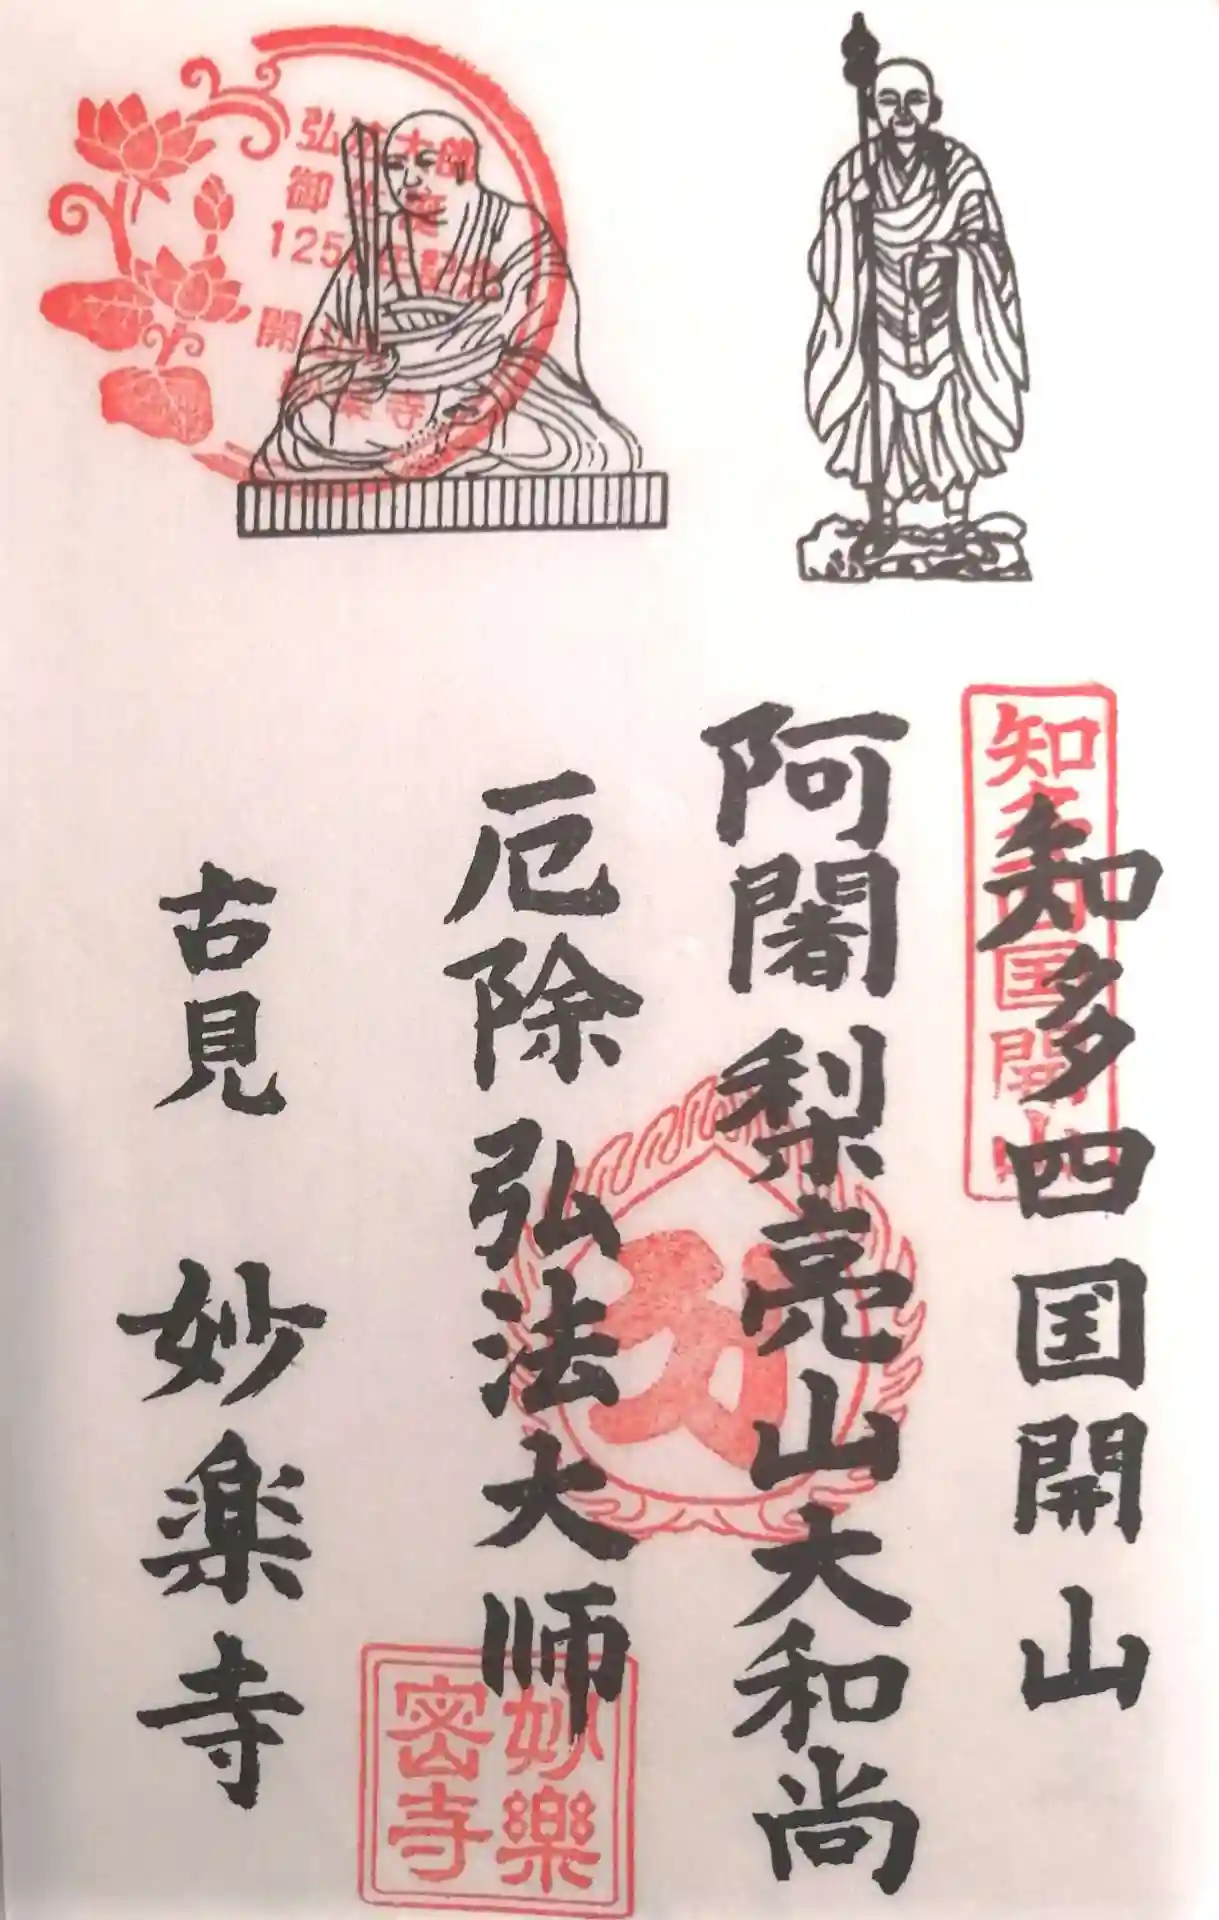 知多四国開山
阿闍梨亮山大和尚
厄除弘法大师
古見 妙楽寺
知多四国開山
弘法大師
御生誕
1250年記念
開山所
妙楽寺
妙樂
密寺